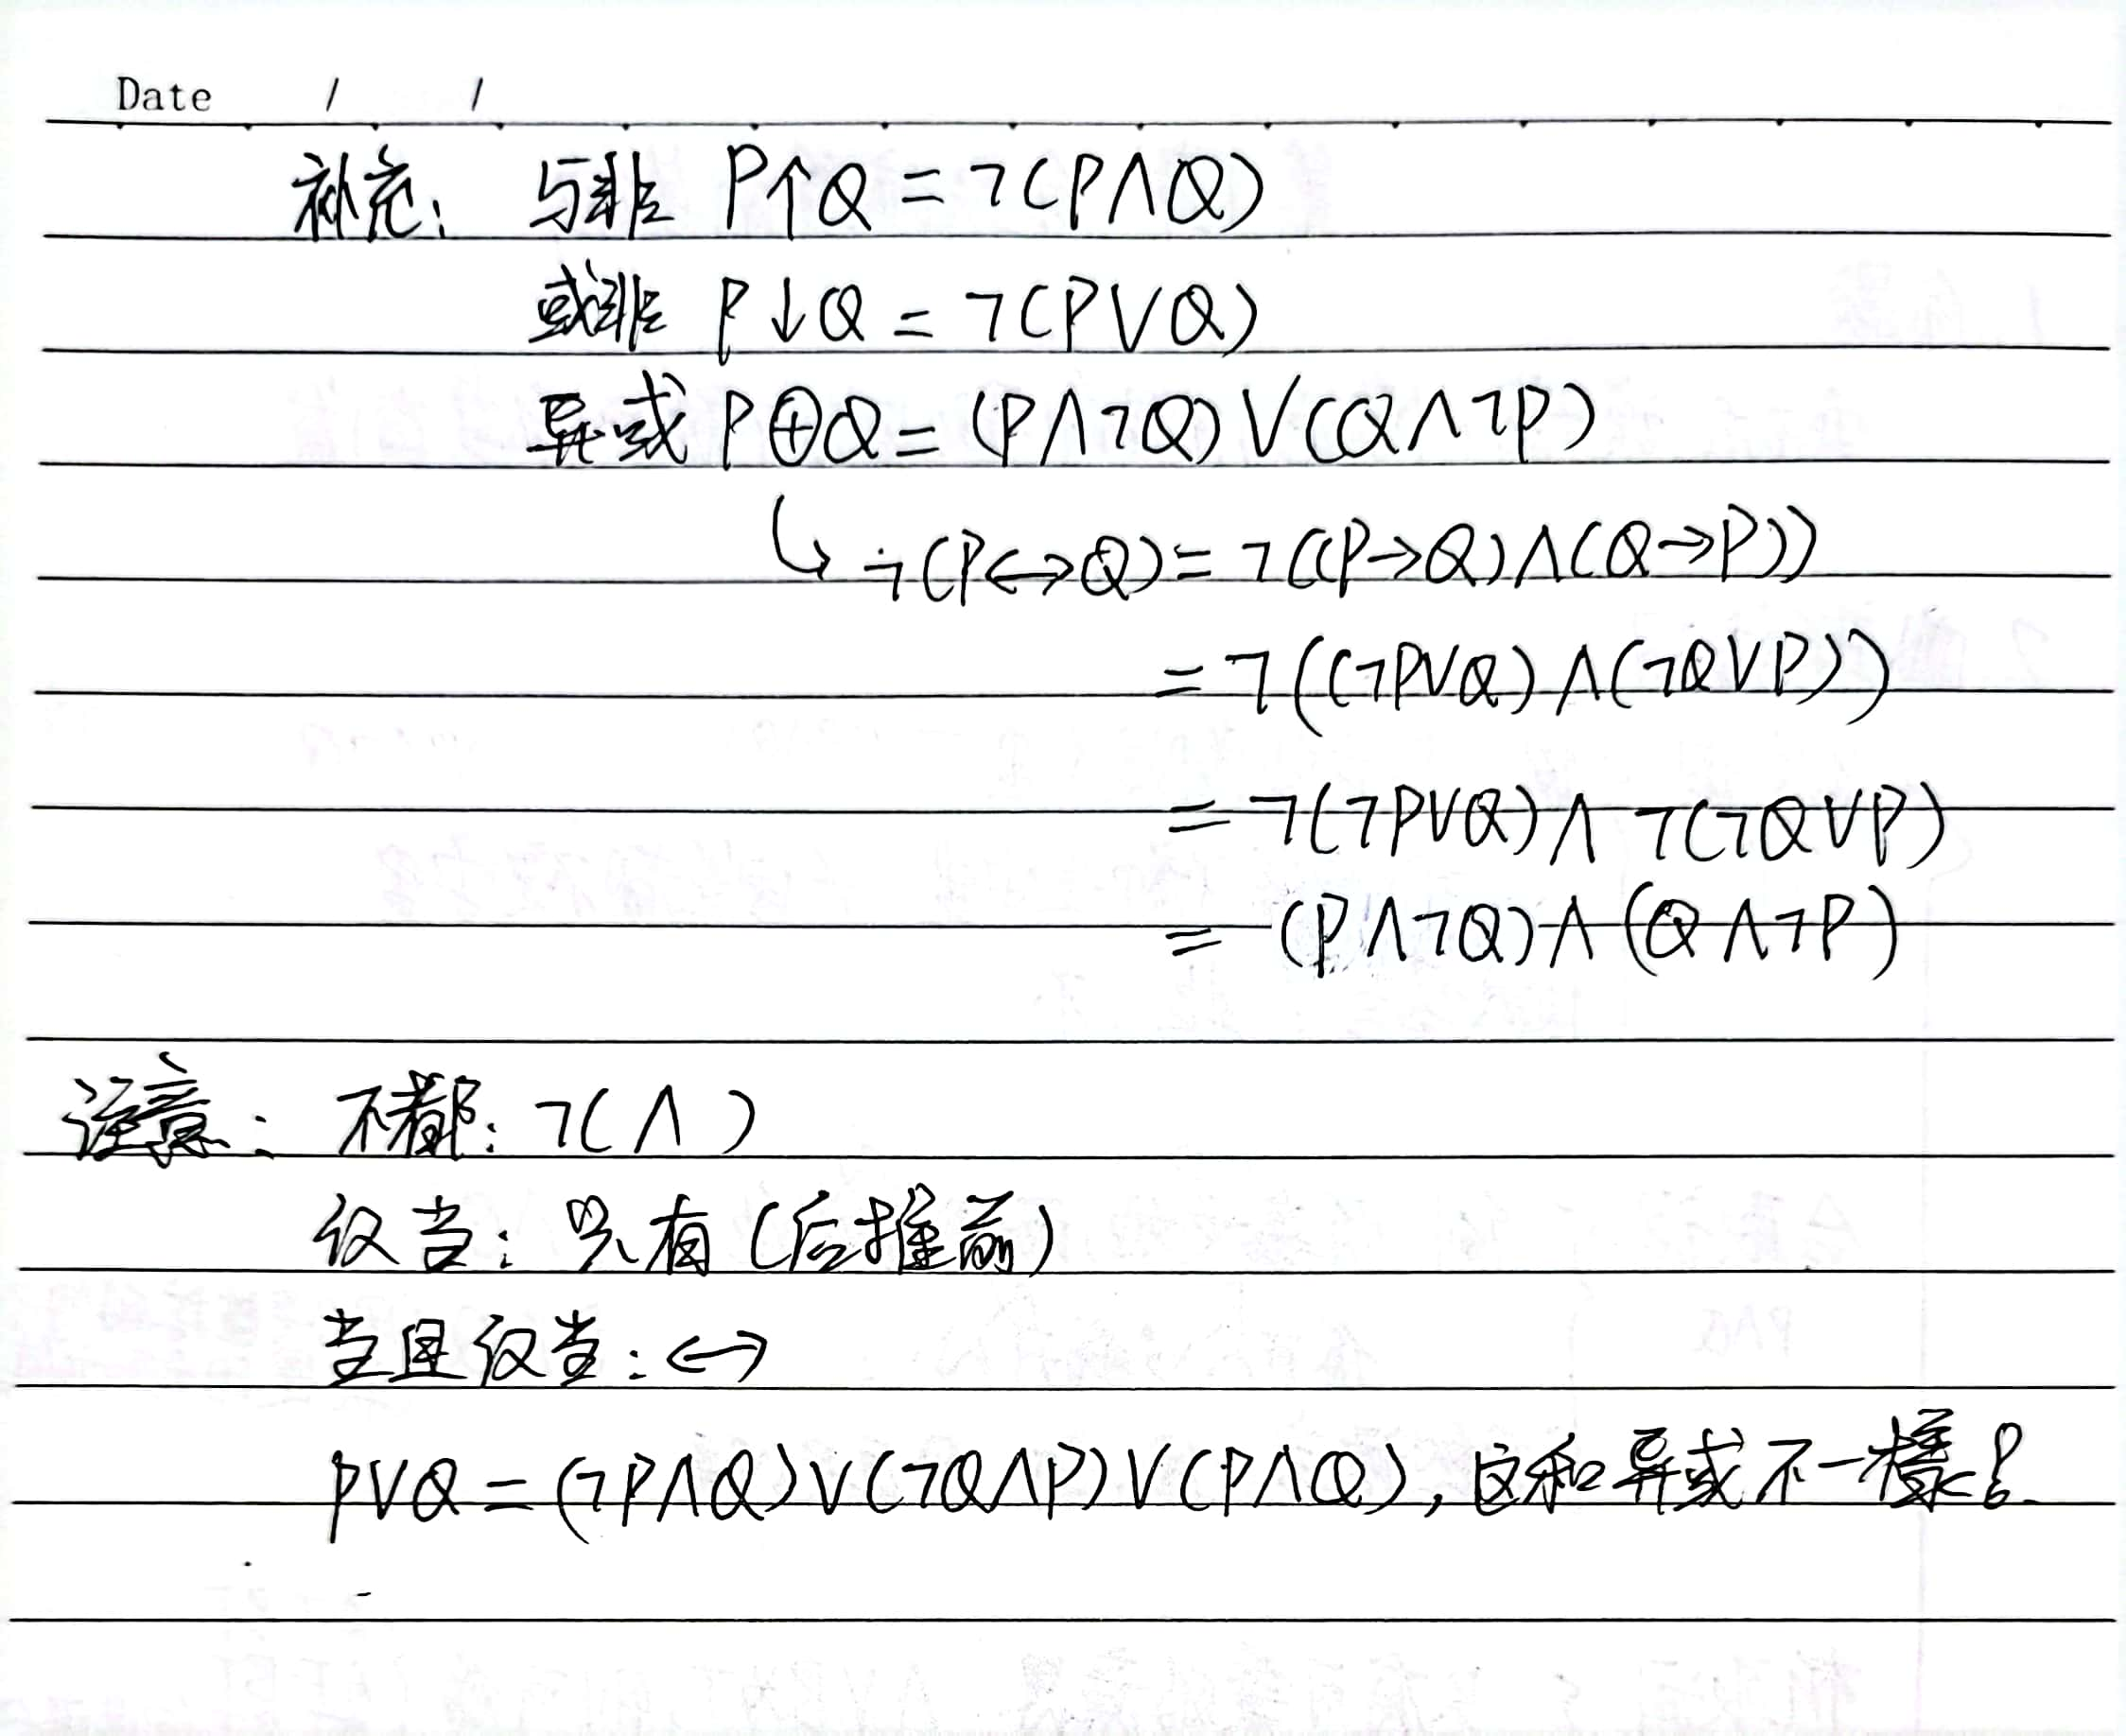 Date / /
补充: 与非 P↑Q = ¬(P∧Q)
或非 P↓Q = ¬(P∨Q)
异或 P⊕Q = (P∧¬Q)∨(Q∧¬P)
↳ ¬(P↔Q) = ¬((P→Q)∧(Q→P))
= ¬((¬P∨Q)∧(¬Q∨P))
= ¬(¬P∨Q)∧ ¬(¬Q∨P)
= (P∧¬Q)∧(Q∧¬P)
注意: 不都: ¬(∧ )
仅当: 只有(后推前)
当且仅当: ↔
P∨Q = (¬P∧Q)∨(¬Q∧P)∨(P∧Q), 这和异或不一樣!